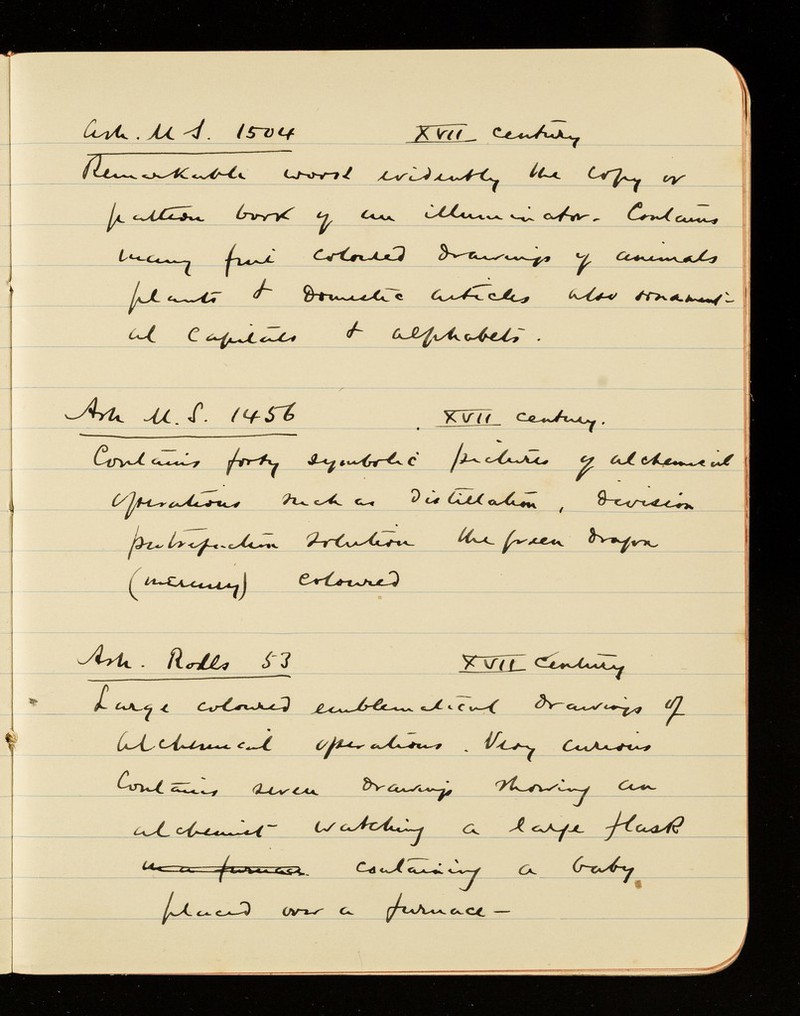 Ash. M S. 1504 XVII century
Remarkable work evidently the copy or
pattern book of an illuminator. Contains
many fine coloured drawings of animals
plants & domestic articles also ornament-
al capitals & alphabets.
Ash M. S. 1456 XVII century.
Contains forty symbolic pictures of alchemical
operations such as distillation, division
putrefaction solution the green dragon
(mercury) coloured
Ash. Rolls 53 XVII century
Large coloured emblematical drawings of
alchemical operations. Very curious
Contains seven drawings showing an
alchemist watching a large flask
in a furnace. containing a baby
placed over a furnace —